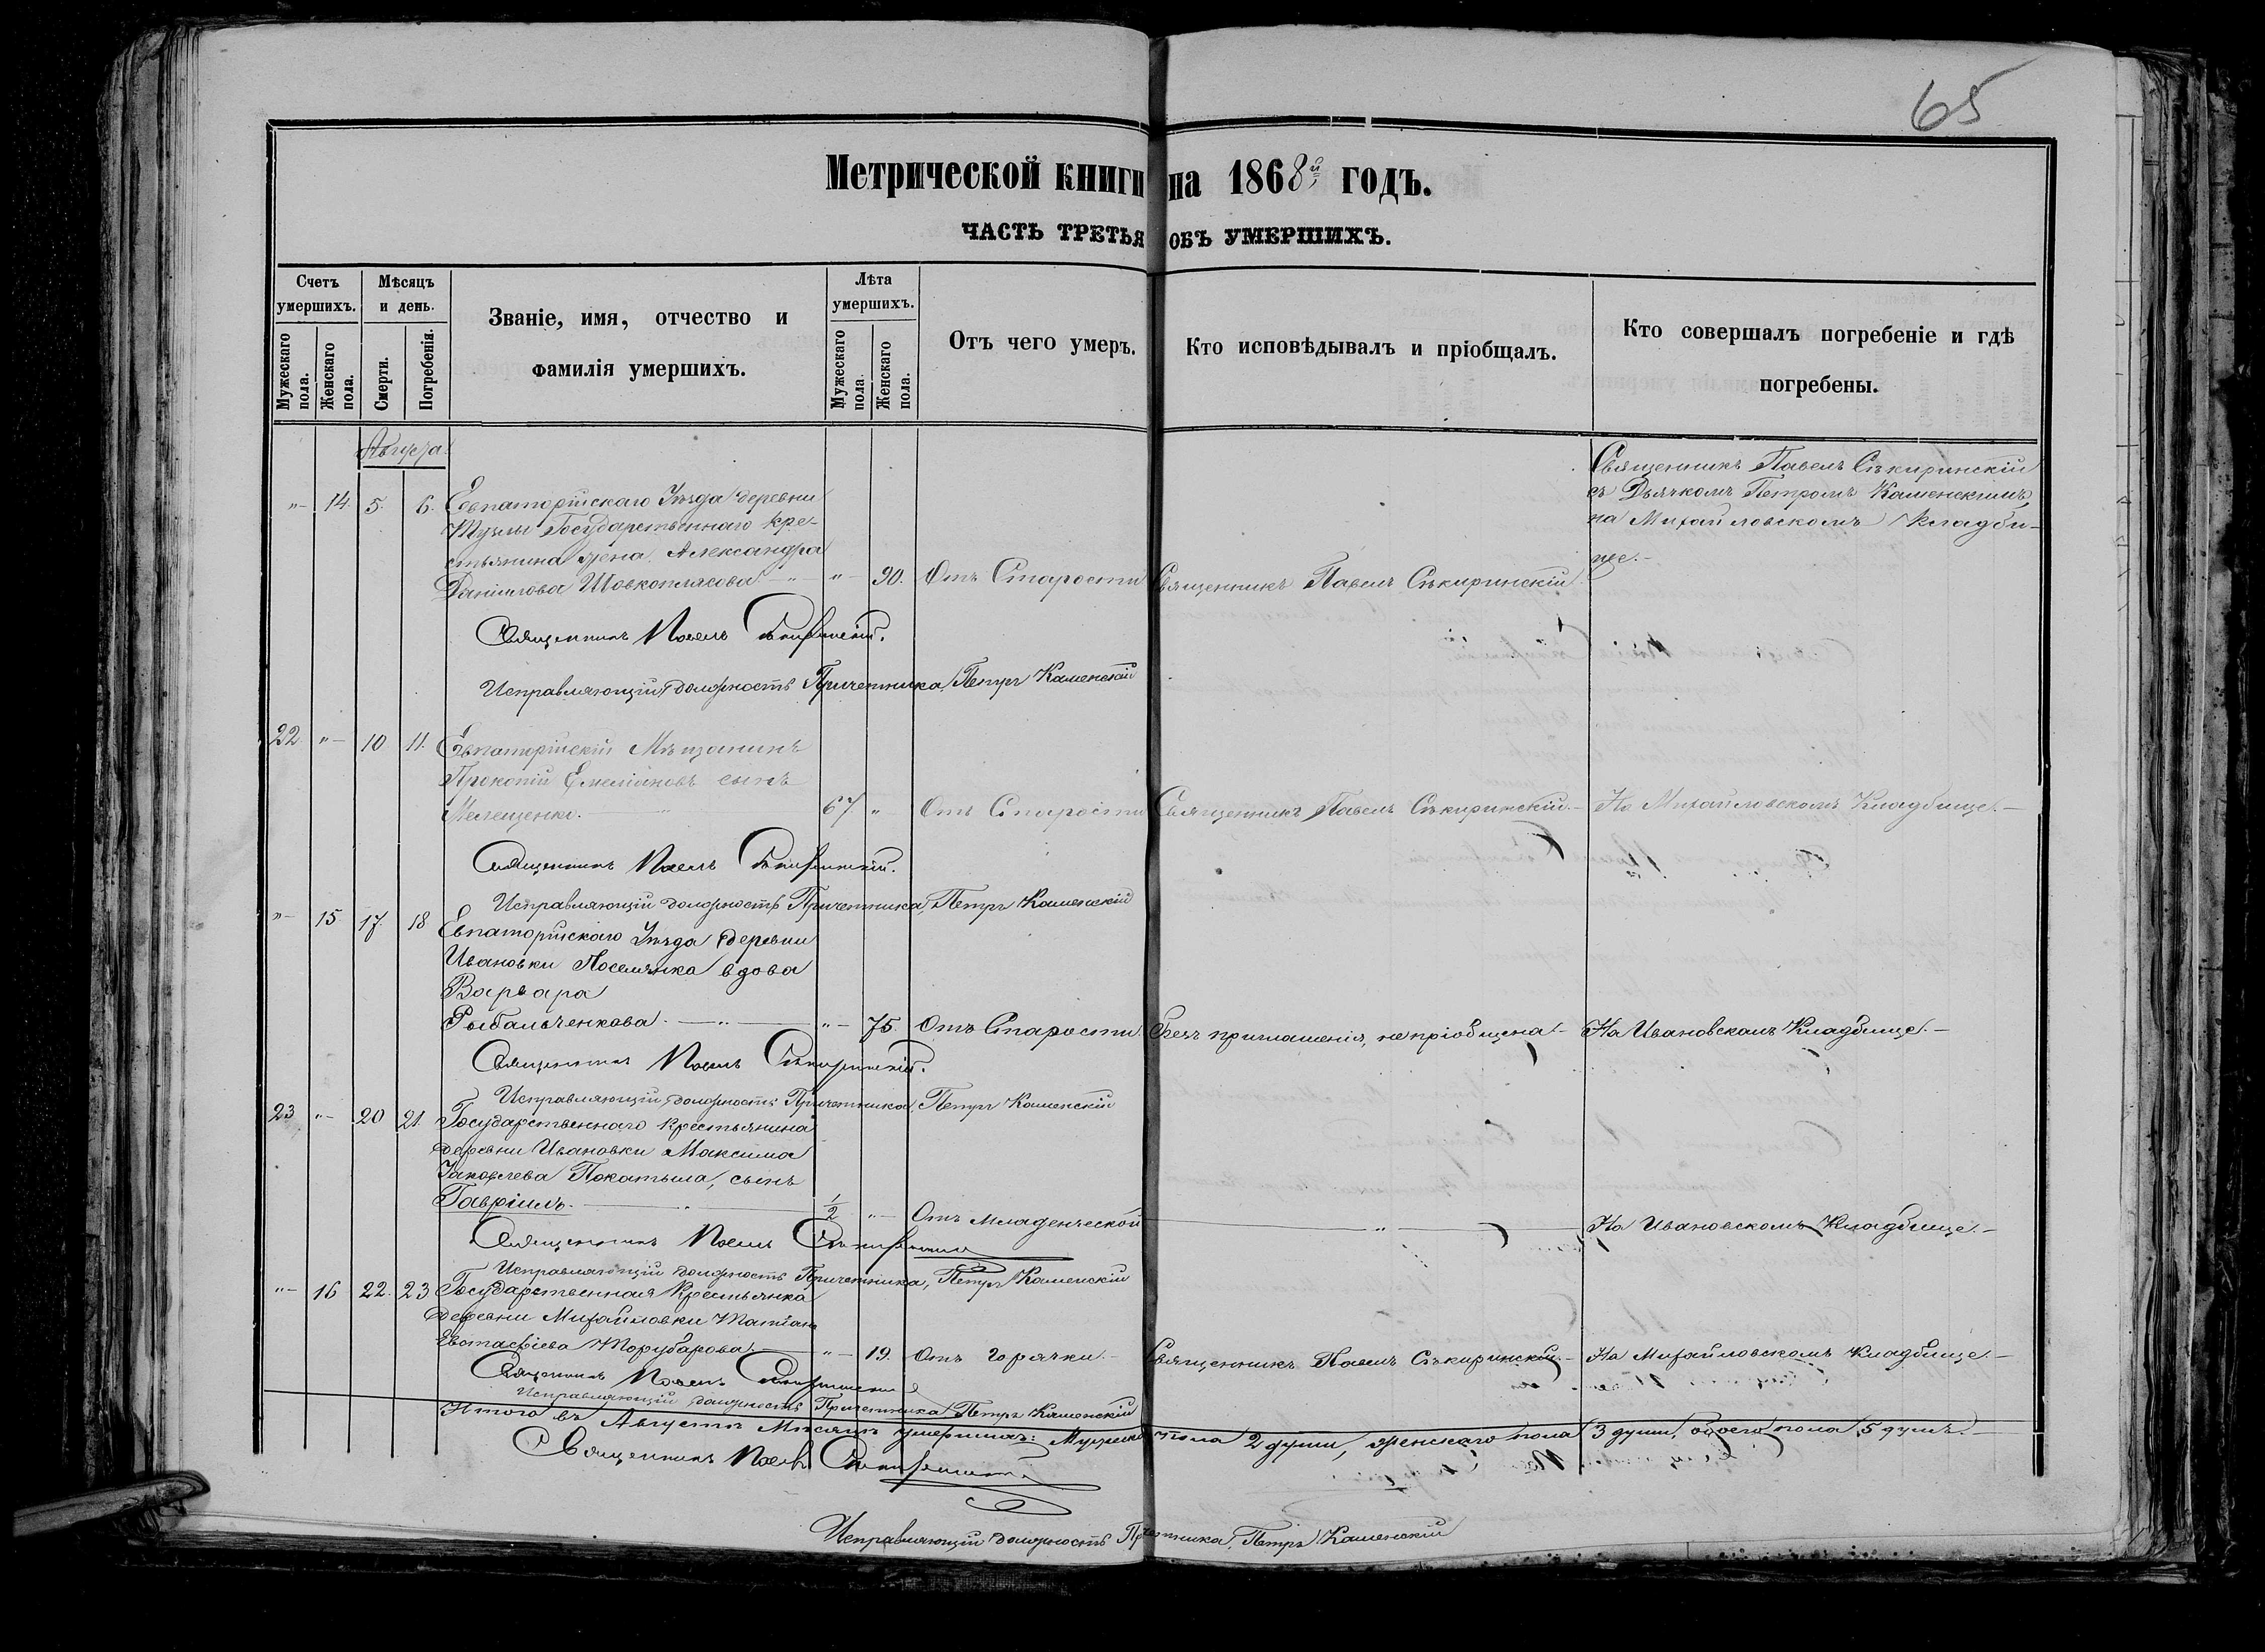 65
Метрической книги на 1868й годъ.
ЧАСТЬ ТРЕТЬЯ ОБЪ УМЕРШИХЪ.
Счетъ умершихъ.
Мужескаго пола.
Женскаго пола.
Мѣсяцъ и день.
Смерти.
Погребенія.
Званіе, имя, отчество и
фамилія умершихъ.
Лѣта умершихъ.
Мужескаго пола.
Женскаго пола.
Отъ чего умеръ.
Кто исповѣдывалъ и пріобщалъ.
Кто совершалъ погребеніе и гдѣ
погребены.
Августа.
Священникъ Павелъ Сѣкиринскій
съ Дьячкомъ Петромъ Каменскимъ,
на Михайловскомъ Кладби-
ще.-
"- 14. 5. 6. Евпаторійскаго Уѣзда деревни
Тузлы Государственнаго кре-
стьянина жена Александра
Даніилова Шовкоплясова "- 90. Отъ Старости Священникъ Павелъ Сѣкиринскій
Священникъ Павелъ Сѣкиринскій.
Исправляющій должность Причетника, Петръ Каменскій
22. "- 10 11. Евпаторійскій Мѣщанинъ
Прокопій Емеліановъ сынъ
Мелещенко. 67. " Отъ Старости Священникъ Павелъ Сѣкиринскій.- На Михайловскомъ Кладбище.-
Священникъ Павелъ Сѣкиринскій.
Исправляющій должность Причетника, Петръ Каменскій
"- 15. 17. 18 Евпаторійскаго Уѣзда деревни
Ивановки Поселянка вдова
Варвара
Рыбальченкова. "- 75. Отъ Старости. Безъ приглашенія, не пріобщена.- На Ивановскомъ Кладбище.-
Священникъ Павелъ Сѣкиринскій.
Исправляющій должность Причетника, Петръ Каменскій
23 "- 20 21. Государственнаго крестьянина
деревни Ивановки Максима
Іаковлева Покатыла, сынъ
Гавріилъ. 1/2 "- Отъ Младенческой " На Ивановскомъ Кладбище.-
Священникъ Павелъ Сѣкиринскій
Исправляющій должность Причетника, Петръ Каменскій
"- 16 22. 23 Государственная Крестьянка
деревни Михайловки
Евстафіева Торубарова. "- 19. Отъ горячки.- Священникъ Павелъ Сѣкиринскій.- На Михайловскомъ Кладбище.-
Священникъ Павелъ Сѣкиринскій
Исправляющій должность Причетника Петръ Каменскій
Итого въ Августѣ Мѣсяцѣ умершихъ: Мужеска пола 2 души, женскаго пола 3 души, обоего пола 5 душъ.-
Священникъ Павелъ Сѣкиринскій
Исправляющій должность Причетника, Петръ Каменскій